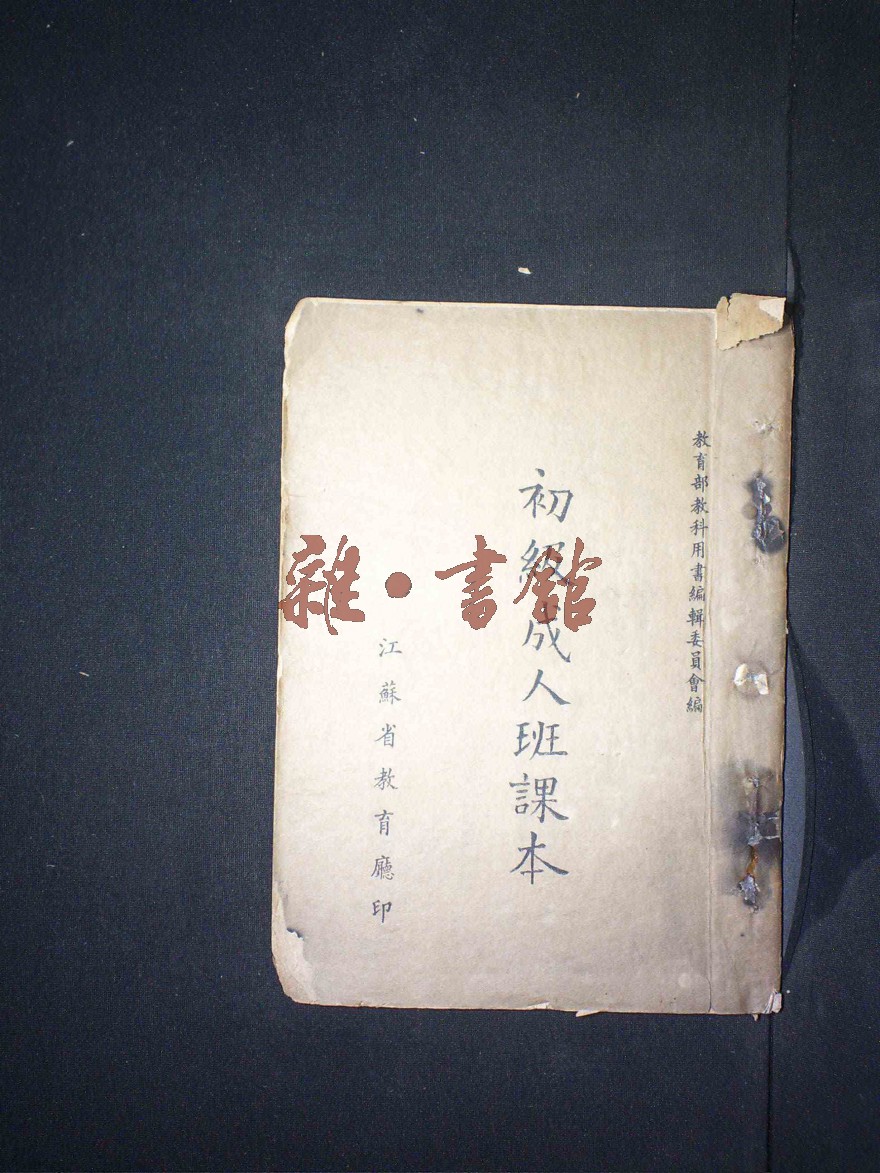 教育部教科用書編輯委員會編
初級成人班課本
江蘇省教育廳印
雜·書館